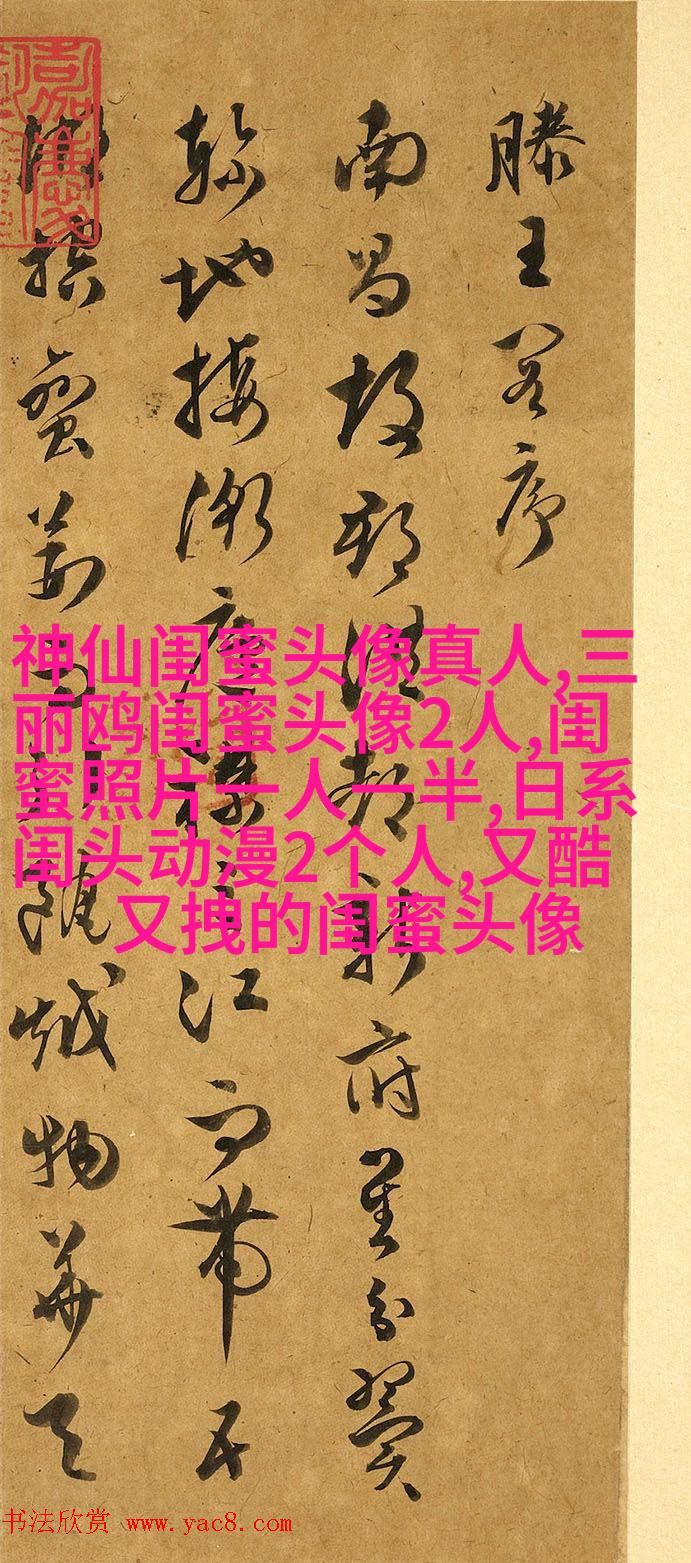 滕王閣序
南昌故郡洪都新府星分翼
軫地接衡廬襟三江而帶五
湖控蠻荊而引甌越物華天
神仙闺蜜头像真人,三
丽鸥闺蜜头像2人,闺
蜜照片一人一半,日系
闺头动漫2个人,又酷
又拽的闺蜜头像
书法欣赏 www.yac8.com